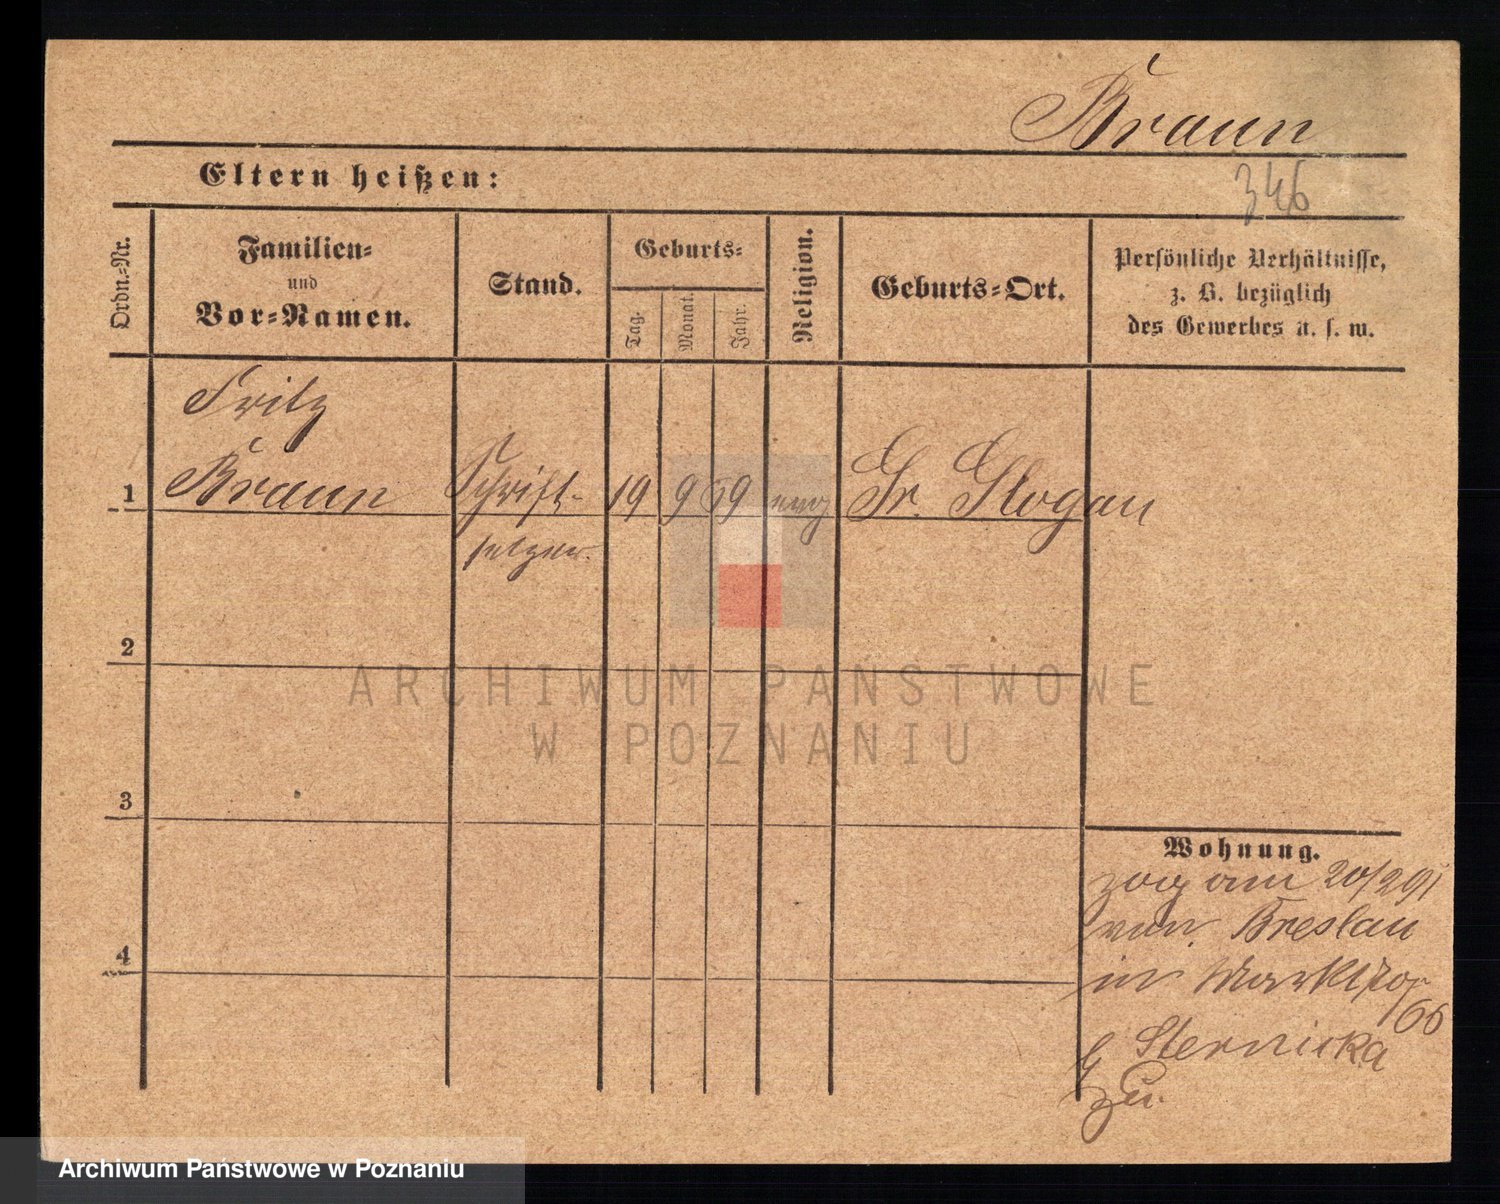 Braun
Eltern heißen:
346
Ordn.-Nr.
Familien-
und
Vor-Namen.
Stand.
Geburts-
Tag.
Monat.
Jahr.
Religion.
Geburts-Ort.
Persönliche Verhältnisse,
z. B. bezüglich
des Gewerbes u. s. w.
Fritz
1 Braun Schrift- 19 9 69 evg Gr. Glogau
setzer.
2
ARCHIWUM PAŃSTWOWE
W POZNANIU
3
Wohnung.
zog am 20/2 91
von Breslau
4
in
66
Sternicka
zu.
Archiwum Państwowe w Poznaniu